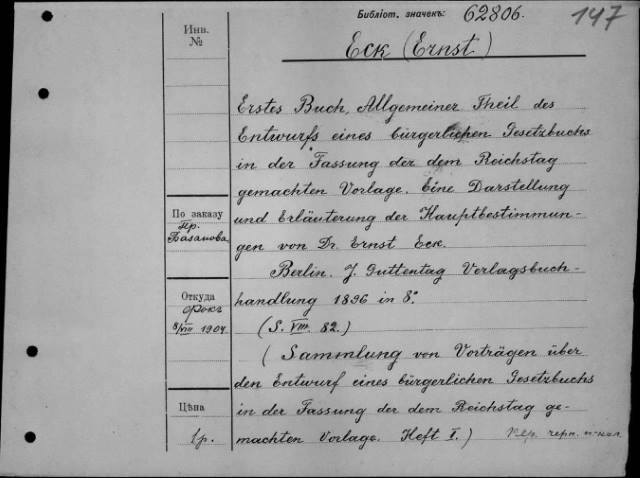 Библіот. значекъ: 62806.
147
Инв.
№
Eck (Ernst)
Erstes Buch, Allgemeiner Theil des
Entwurfs eines bürgerlichen Gesetzbuchs
in der Fassung der dem Reichstag
gemachten Vorlage. Eine Darstellung
und Erläuterung der Hauptbestimmun-
gen von Dr. Ernst Eck.
По заказу
Пр.
Базанова
Berlin. J. Guttentag Verlagsbuch-
handlung 1896 in 8°.
(S. VIII. 82.)
Откуда
8/VIII 1904
(Sammlung von Vorträgen über
den Entwurf eines bürgerlichen Gesetzbuchs
in der Fassung der dem Reichstag ge-
machten Vorlage. Heft I.)
Цѣна
1р.